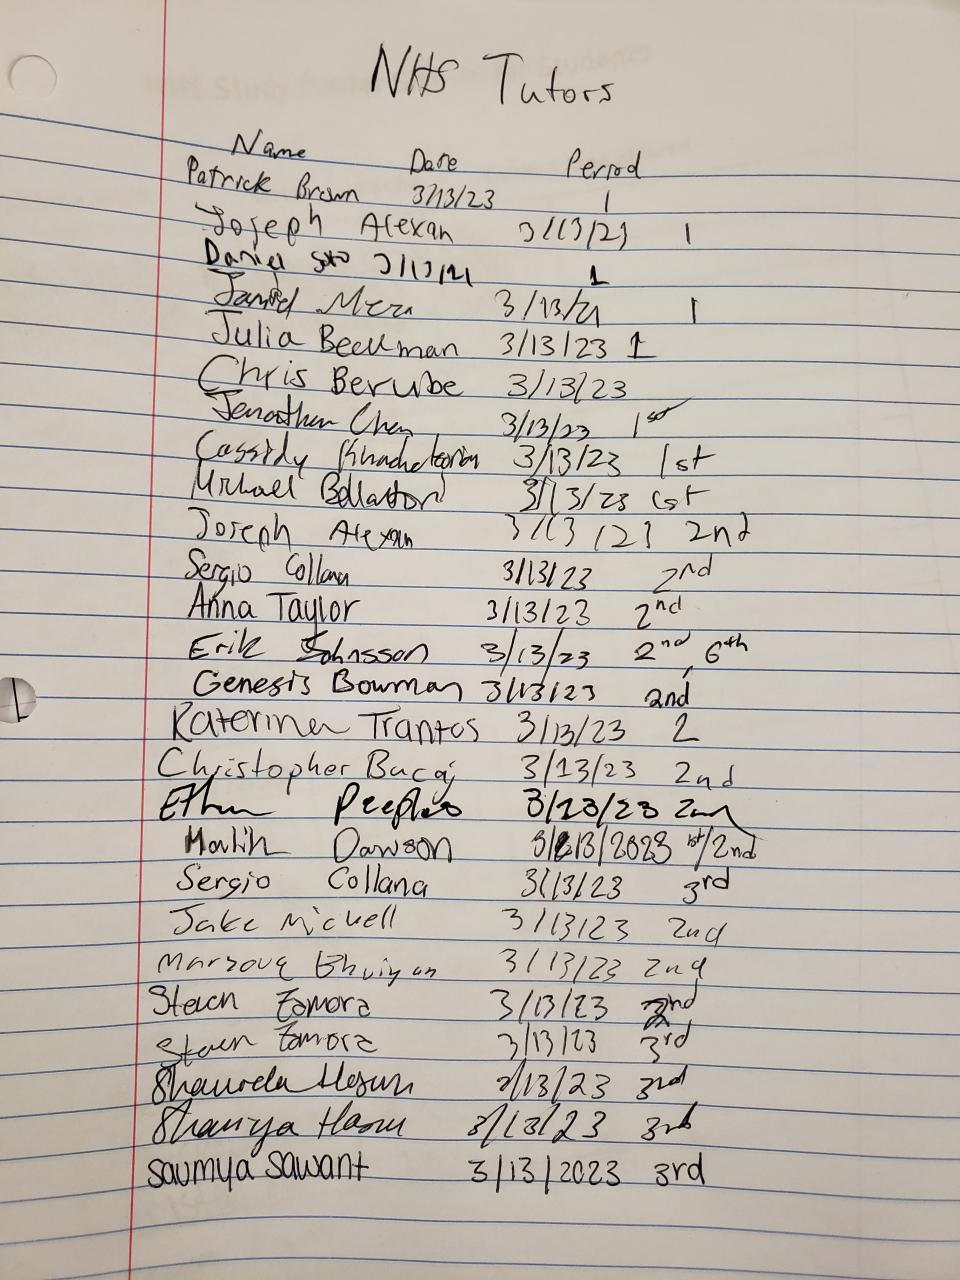 NHS Tutors
Name Date Period
Patrick Brown 3/13/23 1
Joseph Alexan 3/13/21 1
Daniel Soto 3/13/21 1
3/13/21 1
Julia Beckman 3/13/23 1
Chris Berube 3/13/23
Jonathan Chen 3/13/23 1st
Cassidy 3/13/23 1st
Michael 3/13/23 1st
Joseph Alexan 3/13/21 2nd
Sergio Collana 3/13/23 2nd
Anna Taylor 3/13/23 2nd
Erik Johnsson 3/13/23 2nd, 6th
Genesis Bowman 3/13/23 2nd
Katerina Trantos 3/13/23 2
Christopher Bucaj 3/13/23 2nd
Ethan Peeples 3/13/23 2nd
Malik Dawson 3/13/2023 1st/2nd
Sergio Collana 3/13/23 3rd
Jake Mickell 3/13/23 2nd
Marzouq Bhuiyan 3/13/23 2nd
Steven Zamora 3/13/23 2nd
Steven Zamora 3/13/23 3rd
3/13/23 3rd
3/13/23 3rd
Saumya Sawant 3/13/2023 3rd